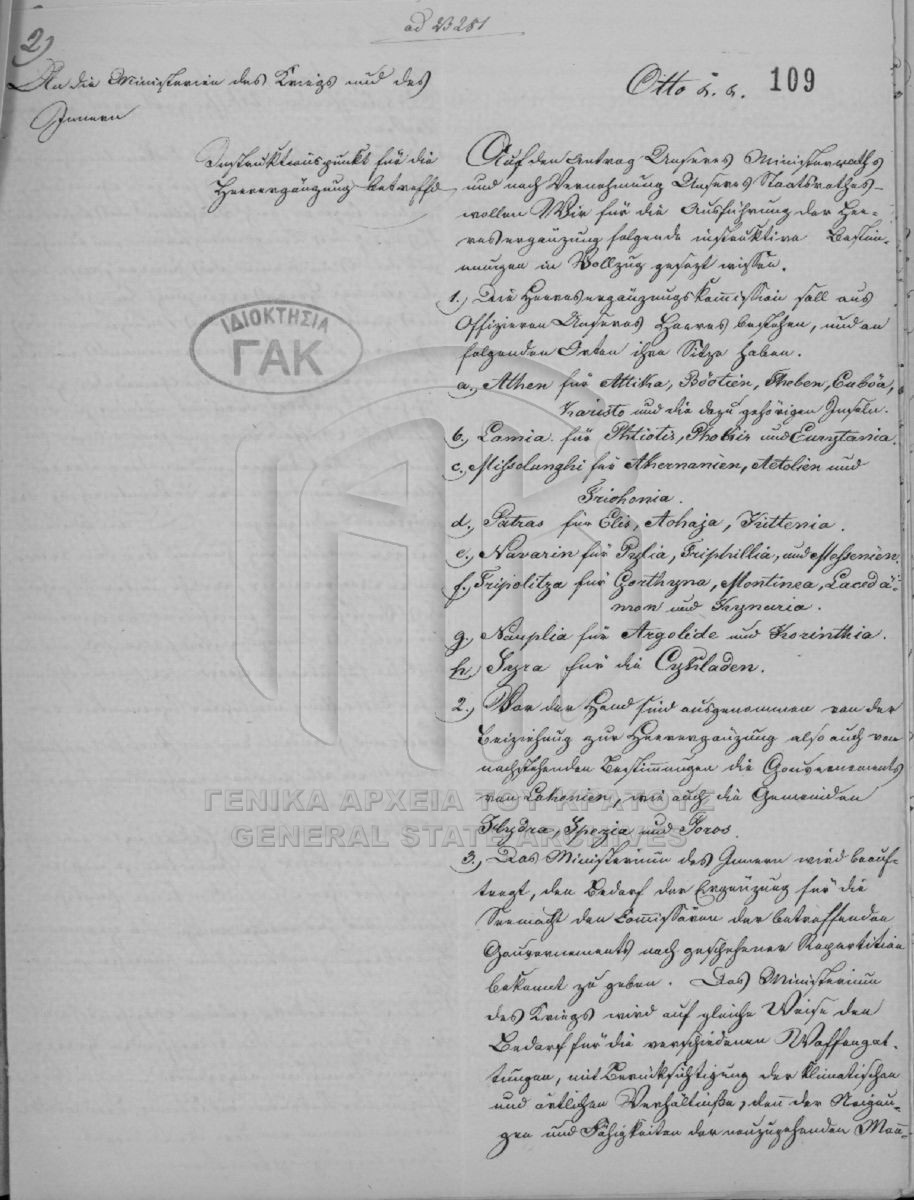 ad 23281
2)
An die Ministerien des Kriegs und des
Innern
Otto &. &. 109
Instruktionspunkt für die
Heerergänzung betreffd
Auf den Antrag Unseres Ministerraths
und nach Vernehmung Unseres Staatsrathes
wollen Wir für die Ausführung der Hee-
resergänzung folgende instruktive Bestim-
mungen in Vollzug gesezt wissen.
1.) Die Heeresergänzungskommission soll aus
Offizieren Unseres Heeres bestehen, und an
folgenden Orten ihre Sitze haben.
a.) Athen für Attika, Böotien, Theben, Euböa,
Karisto und die dazu gehörigen Inseln.
b.) Lamia für Phtiotis, Phokis und Eurytania.
c.) Missolunghi für Akernanien, Aetolien und
Trichonia.
d. Patras für Elis, Achaja, Kiltenia.
e.) Navarin für Pylia, Triphillia, und Messenien.
f.) Tripolitza für Gorthyna, Montinea, Lacedä-
mon und Kynuria.
g.) Nauplia für Argolide und Korinthia.
h.) Syra für die Cykladen.
2.) Vor der Hand sind ausgenommen von der
Beiziehung zur Heerergänzung also auch von
nachstehenden Bestimmungen die Gouvernements
von Lakonien, wie auch die Gemeinden
Hydra, Spezia und Poros.
3.) Das Ministerium des Innern wird beauf-
tragt, den Bedarf der Ergänzung für die
Seemacht den Commissären der betreffenden
Gouvernements nach geschehener Repartition
bekannt zu geben. Das Ministerium
des Kriegs wird auf gleiche Weise den
Bedarf für die verschiedenen Waffengat-
tungen, mit Berücksichtigung der klimatischen
und örtlichen Verhältniße, dann der Neigun-
gen und Fähigkeiten der neuzugehenden Mann-
ΙΔΙΟΚΤΗΣΙΑ
ΓΑΚ
ΓΕΝΙΚΑ ΑΡΧΕΙΑ ΤΟΥ ΚΡΑΤΟΥΣ
GENERAL STATE ARCHIVES